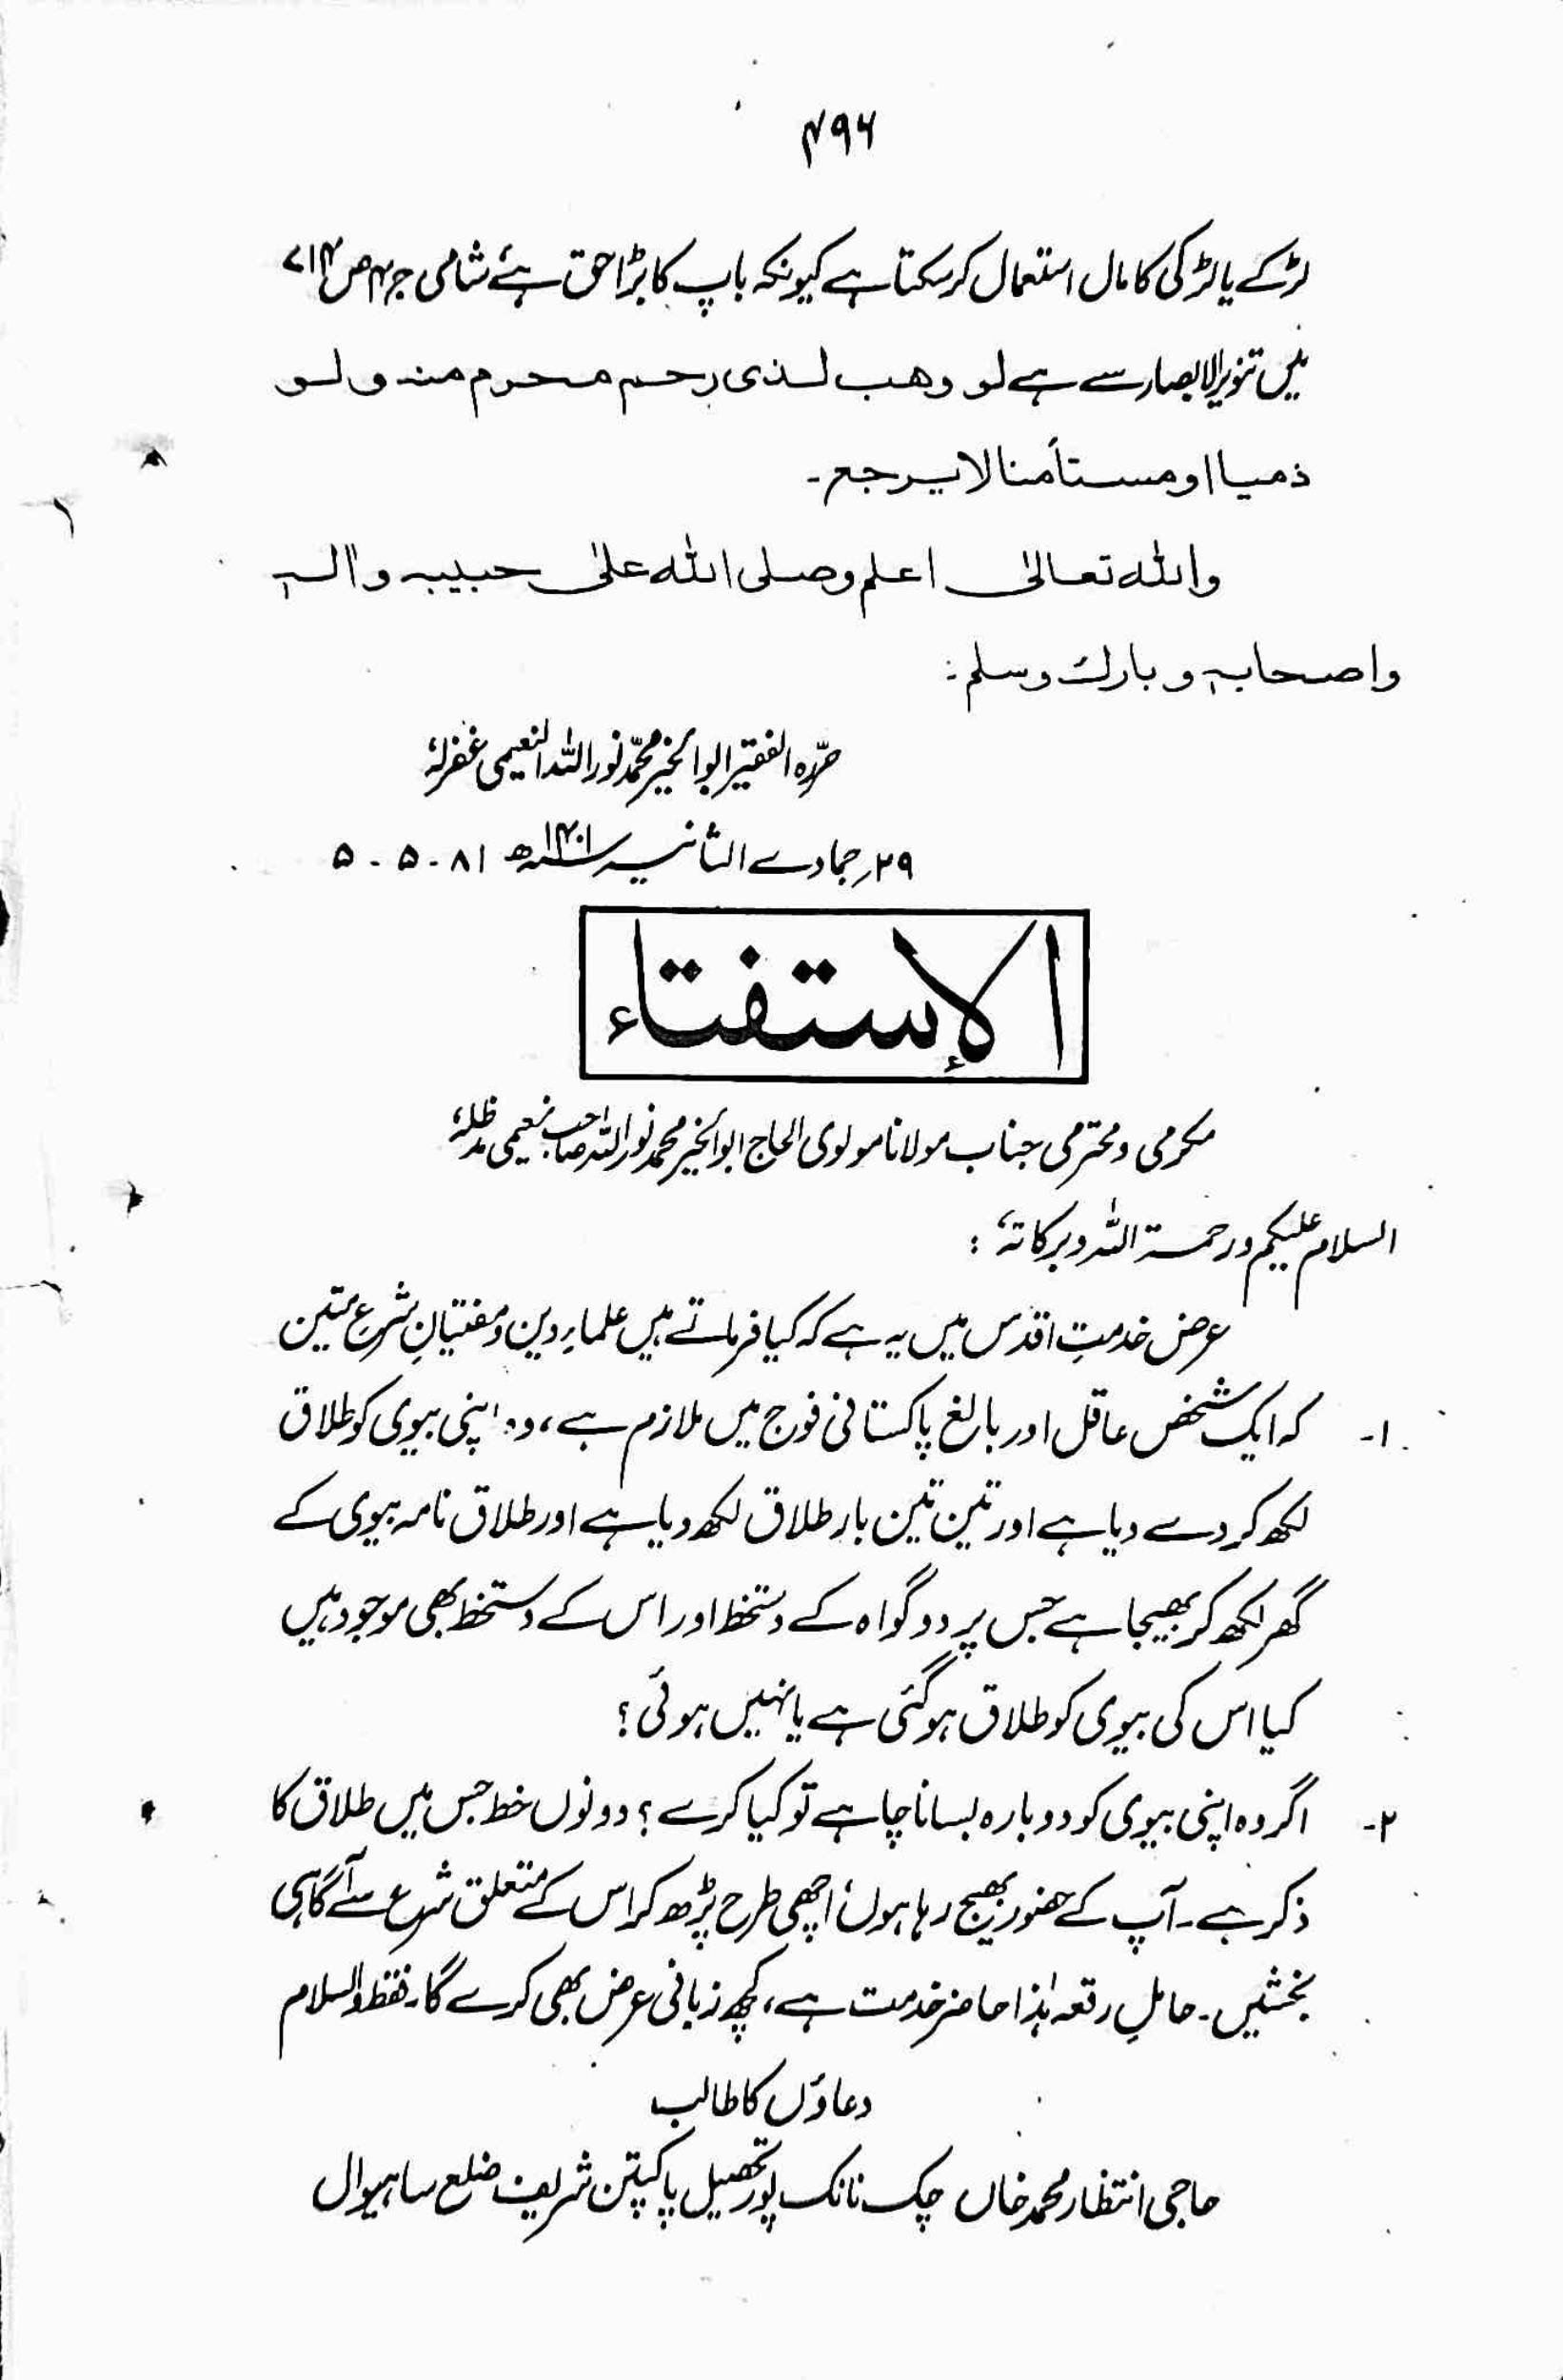 ۴۹۶
لڑکے یا لڑکی کا مال استعمال کر سکتا ہے کیونکہ باپ کا بڑا حق ہے شامی ج۴ ص۷۱۴
میں تنویر الابصار سے ہے لو وهب لذی رحم محرم منہ ولو
ذمیا او مستأمنا لا یرجع۔
واللہ تعالیٰ اعلم وصلی اللہ علیٰ حبیبہ واٰلہ
واصحابہ وبارک وسلم :
حرّرہ الفقیر ابوالخیر محمّد نور اللہ النعیمی غفرلہٗ
۲۹ جمادے الثانیہ ۱۴۰۱ھ ۸۱ - ۵ - ۵
الإستفتاء
مکرمی و محترمی جناب مولانا مولوی الحاج ابوالخیر محمد نور اللہ صاحب نعیمی مدظلہٗ
السلام علیکم ورحمۃ اللہ وبرکاتہٗ :
عرض خدمتِ اقدس میں یہ ہے کہ کیا فرماتے ہیں علماءِ دین و مفتیانِ شرع متین
۱- کہ ایک شخص عاقل اور بالغ پاکستانی فوج میں ملازم ہے، وہ اپنی بیوی کو طلاق
لکھ کر دے دیا ہے اور تین تین بار طلاق لکھ دیا ہے اور طلاق نامہ بیوی کے
گھر لکھ کر بھیجا ہے جس پر دو گواہ کے دستخط اور اس کے دستخط بھی موجود ہیں
کیا اس کی بیوی کو طلاق ہو گئی ہے یا نہیں ہوئی؟
۲- اگر وہ اپنی بیوی کو دوبارہ بسانا چاہے تو کیا کرے؟ دونوں خط جس میں طلاق کا
ذکر ہے۔ آپ کے حضور بھیج رہا ہوں، اچھی طرح پڑھ کر اس کے متعلق شرع سے آگاہی
بخشیں۔ حاملِ رقعہ ہٰذا حاضر خدمت ہے، کچھ زبانی عرض بھی کرے گا۔ فقط والسلام
دعاؤں کا طالب
حاجی انتظار محمد خاں چک نانک پور تحصیل پاکپتن شریف ضلع ساہیوال